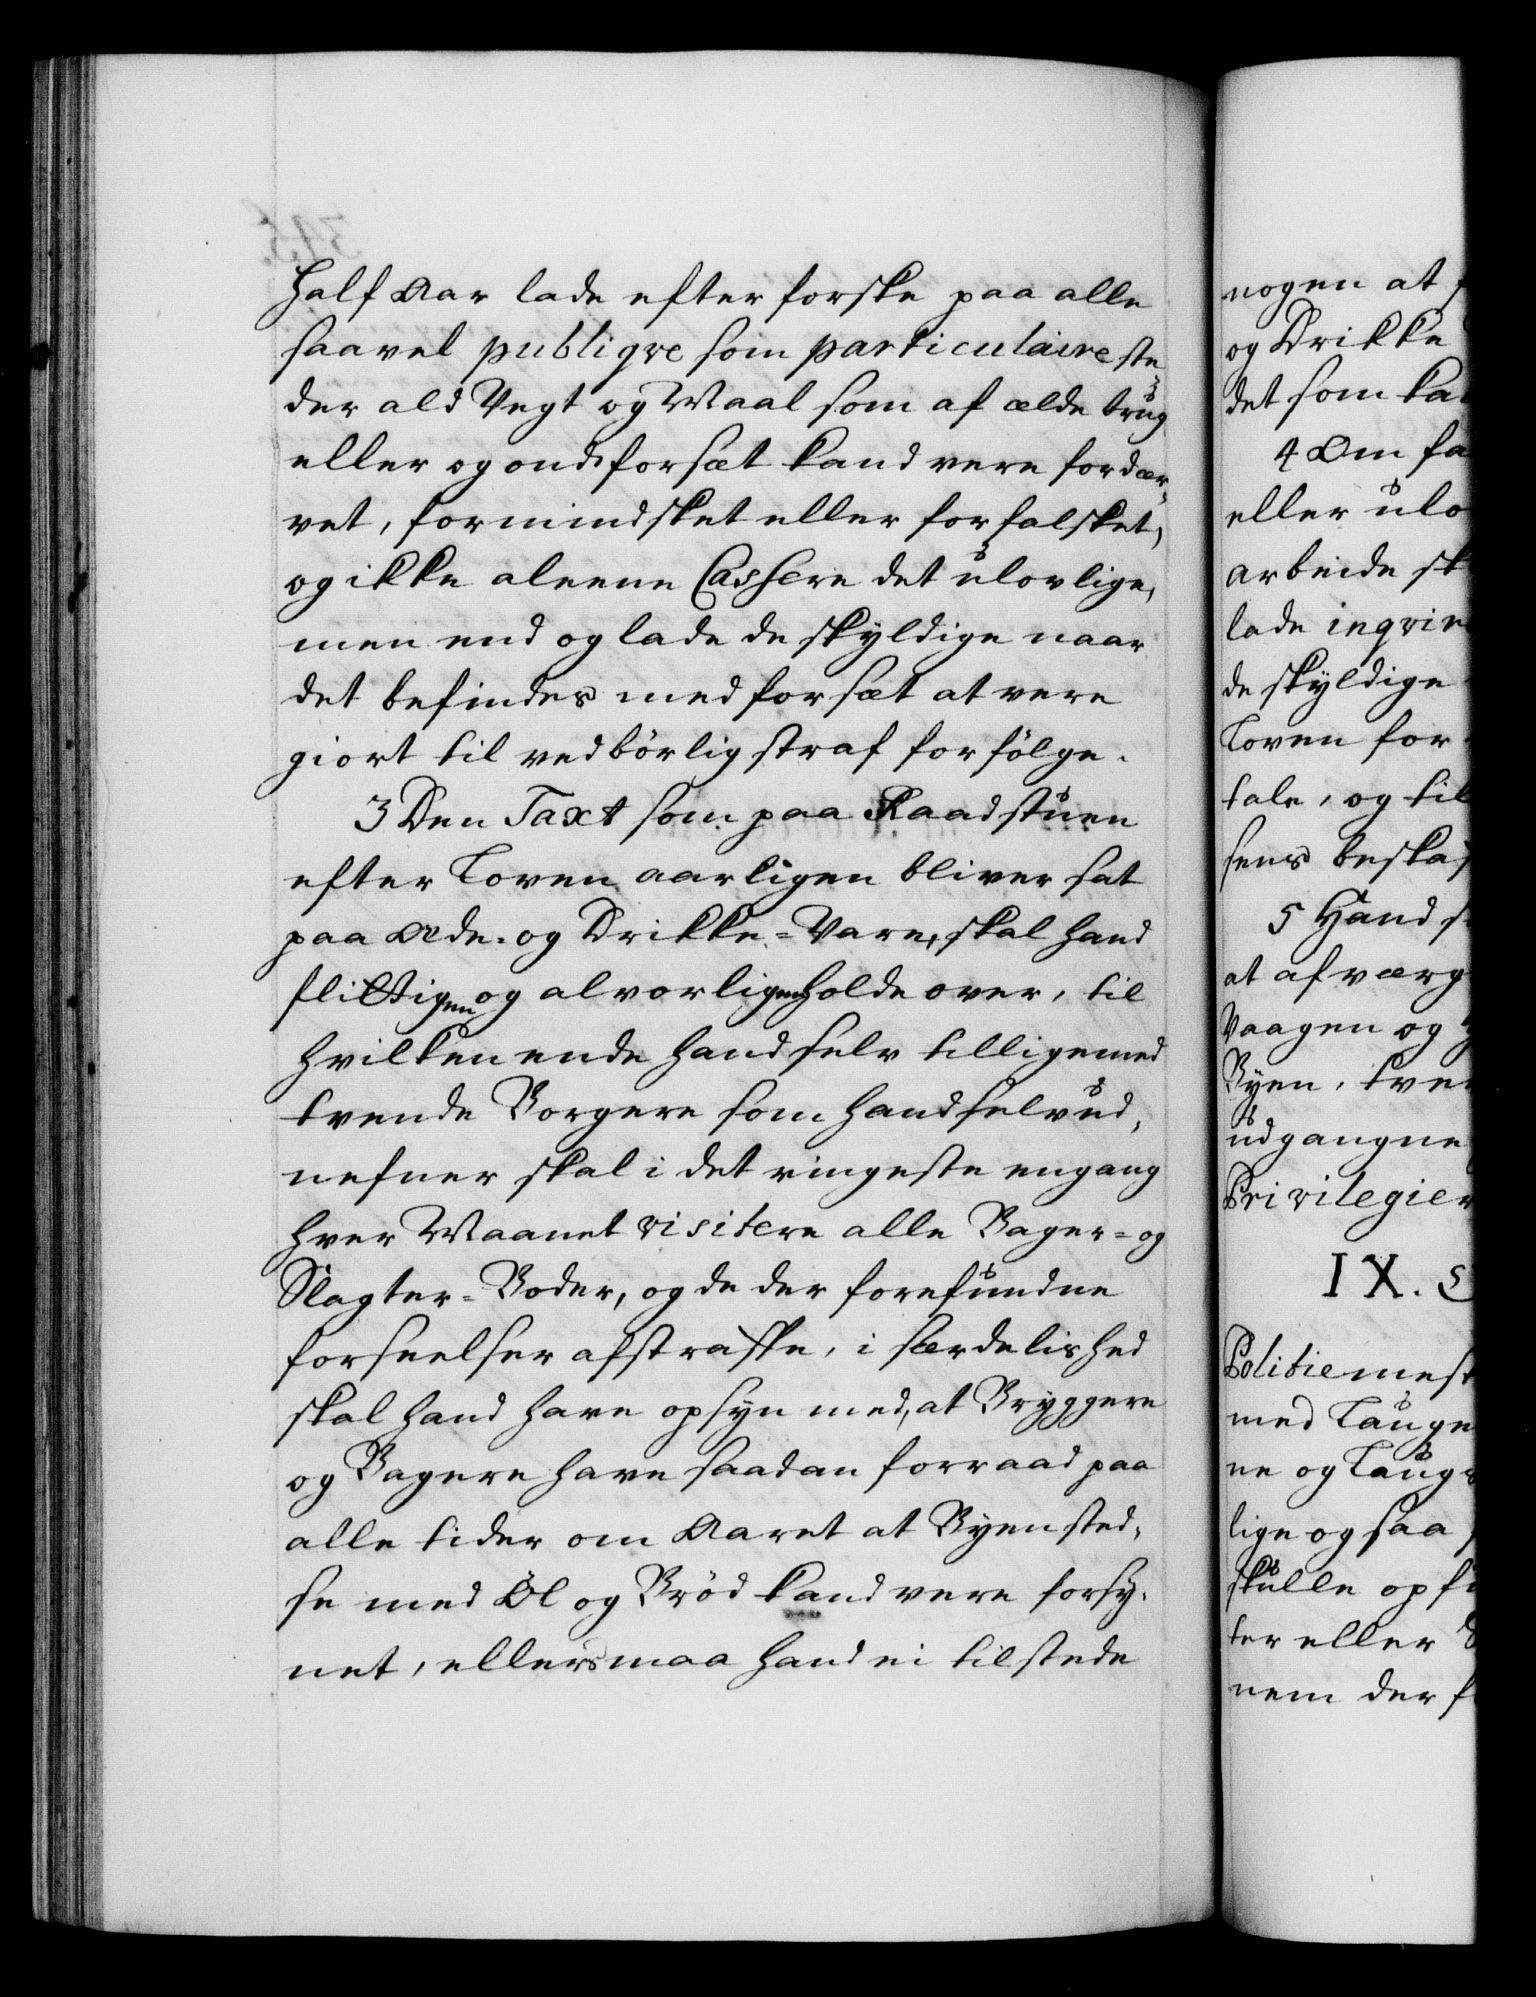 half Aar lade efter forske paa alle
saavel publiqve som particulaire ste¬
der ald Vegt og Maal som af ælde brug
eller og ond forsæt kand vere fordær¬
vet, formindsket eller forfalsket,
og ikke aleene Cassere det ulovlige,
men end og lade de skyldige naar
det befindes med forsæt at vere
giort til vedbörlig straf forfölge.
3 Den Taxt som paa Raadstuen
efter Loven aarligen bliver sat
paa Æde- og Drikke-Vare, skal hand
flittigen og alvorligen holde over, til
hvilken ende hand selv tilligemed
tvende Borgere som hand selv ud¬
nefner skal i det ringeste engang
hver Maanet visitere alle Bager- og
Slagter-Boder, og de der forefundne
forseelser afstraffe, i særdelished
skal hand have opsyn med, at Bryggere
og Bagere have saadan forraad paa
alle tider om Aaret at Byen sted¬
se med Öl og Bröd kand vere forsy¬
net, ellers maa hand ei tilstede
nogen at
og Drikke
det som
4 Om
eller
arbeide
lade
de skyldige
Loven for
tale, og til
sens
5 Hand
at
Vaagen og
Byen,
udgangne
Privilegier
IX.
med
ne og
lige ogsaa
skulle
ter eller
nem der